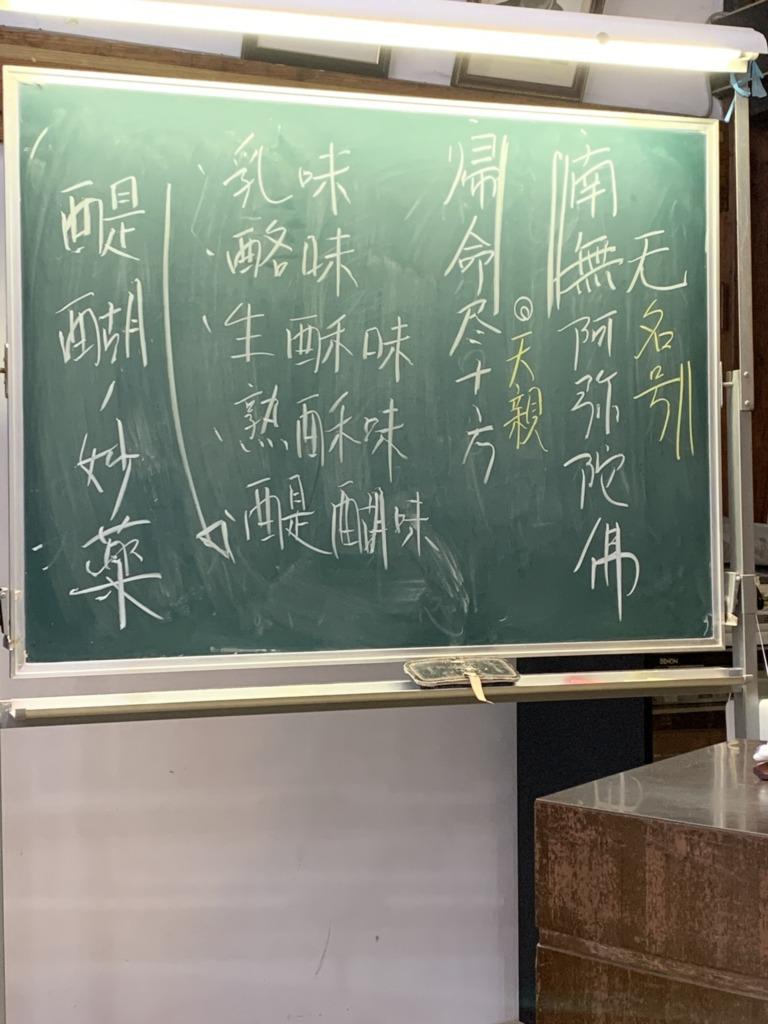 无名号
南無阿弥陀佛
天親
帰命尽十方
乳味
酪味
生酥味
熟酥味
醍醐味
醍醐ノ妙薬
DENON